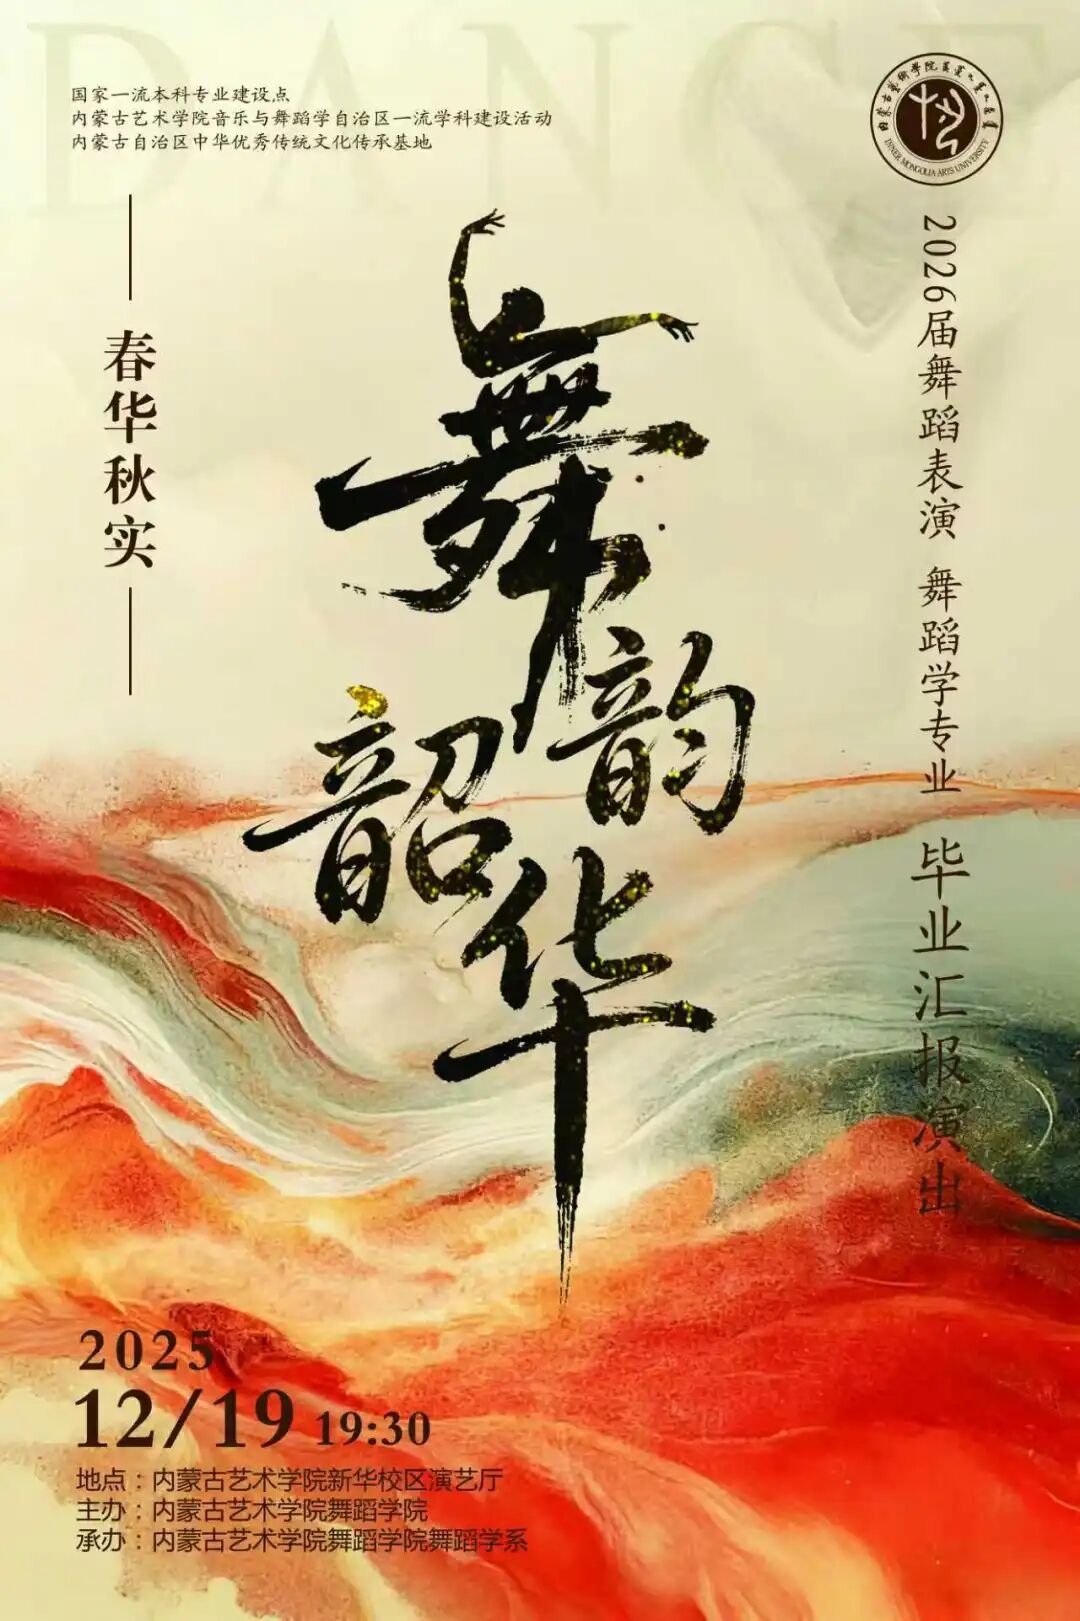 DANCE
国家一流本科专业建设点
内蒙古艺术学院音乐与舞蹈学自治区一流学科建设活动
内蒙古自治区中华优秀传统文化传承基地
内蒙古艺术学院
INNER MONGOLIA ARTS UNIVERSITY
春华秋实
舞韵
韶华
2026届舞蹈表演 舞蹈学专业 毕业汇报演出
2025
12/19 19:30
地点：内蒙古艺术学院新华校区演艺厅
主办：内蒙古艺术学院舞蹈学院
承办：内蒙古艺术学院舞蹈学院舞蹈学系